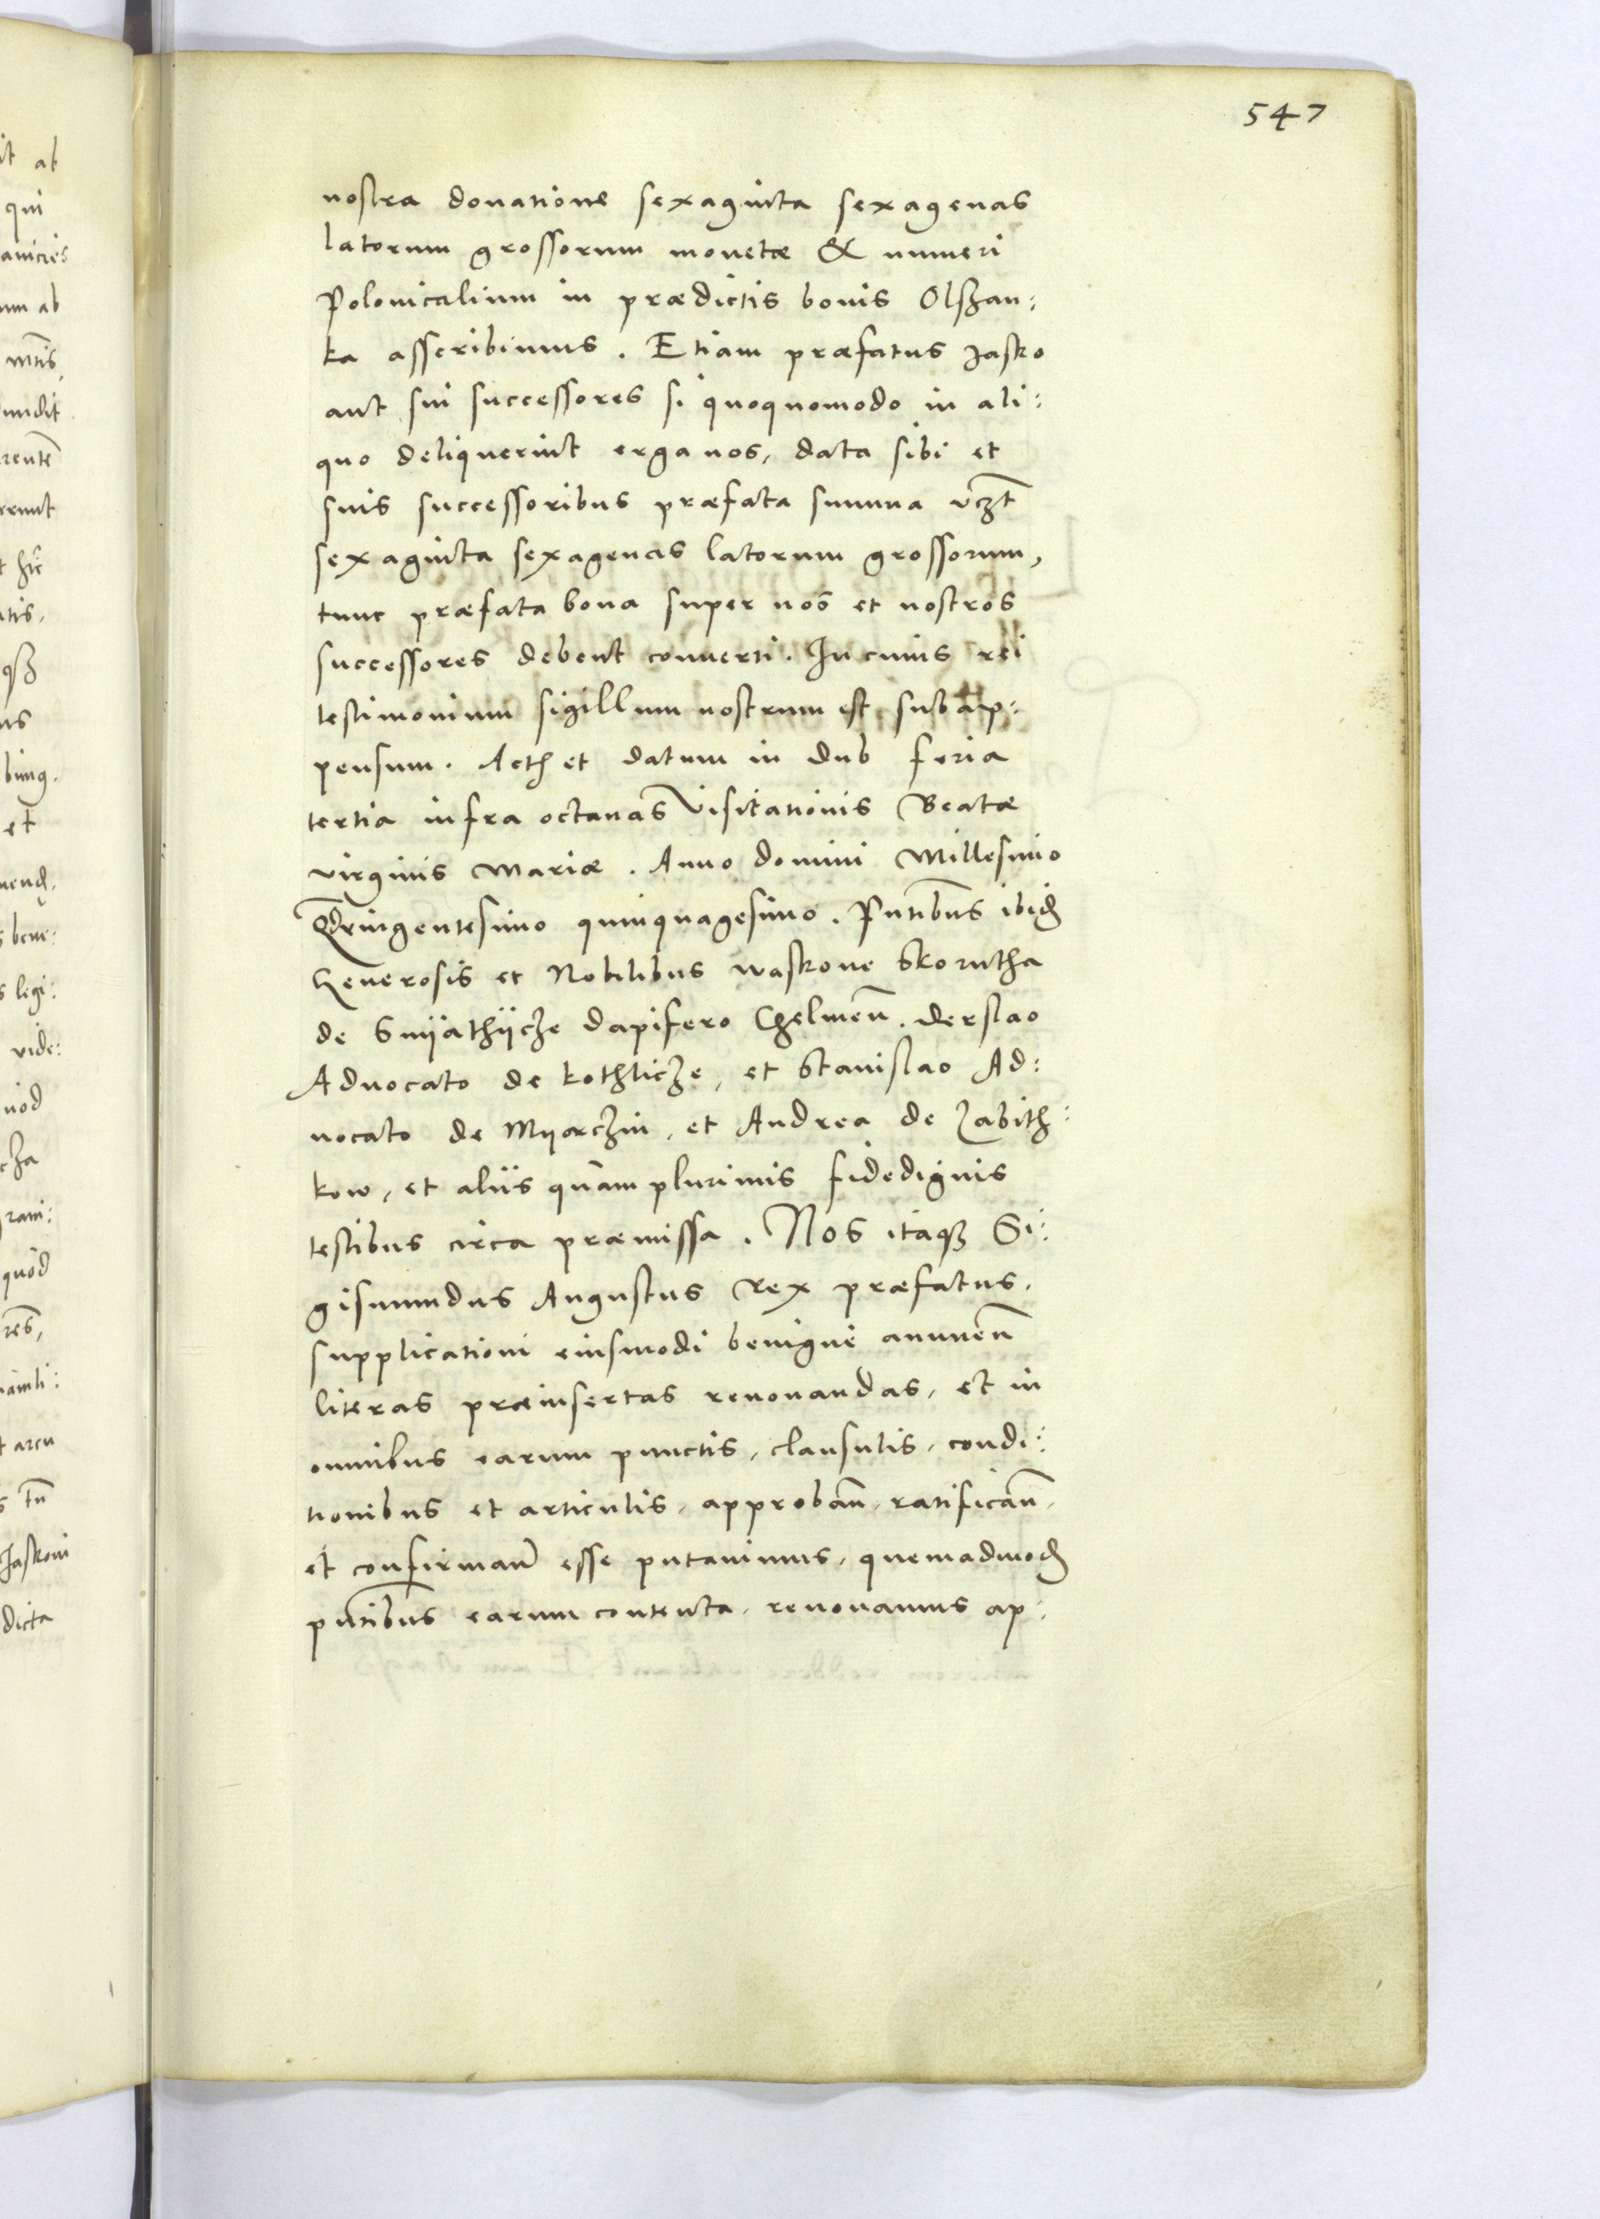 547
nostra donatione sexaginta sexagenas
latorum grossorum monetæ & numeri
Polonicalium in prædictis bonis Olszan:
ka asscribimus. Etiam præfatus Jasko
aut sui successores si quoquomodo in ali:
quo deliquerint erga nos, data sibi et
suis successoribus præfata summa vczt̄
sexaginta sexagenas latorum grossorum,
tunc præfata bona super nos et nostros
successores debent conuerti. In cuius rei
testimonium sigillum nostrum est subap:
pensum. Acth et datum in dub feria
tertia infra octauas Visitationis Beatæ
virginis Mariæ. Anno domini Millesimo
Qdringentesimo quinquagesimo. Pntibus ibid
Generosis et Nobilibus waskone Skorutha
de Smÿathÿcze dapifero Chelmeñ. derslao
Aduocato de kothlicze, et Stanislao Ad:
uocato de Mÿaczin, et Andrea de Zabith:
kow, et aliis quàm plurimis fidedignis
testibus circa præmissa. Nos itaq₃ Si:
gismundus Augustus Rex præfatus,
supplicationi eiusmodi benignè annueñ
literas præinsertas renouandas, et in
omnibus earum punctis, clausulis, condi:
tionibus et articulis, approbañ, ratificañ,
et confirmañ esse putauimus, quemadmod
pntibus earum contenta, renouamus ap:
ab
qui
um ab
et
bene:
legi:
vide:
quòd
arcu
Jaskoni
dicta